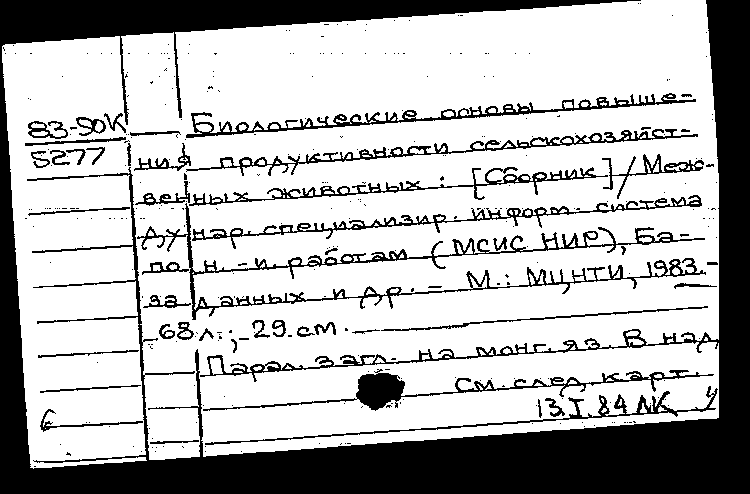 83-50К Биологические основы повыше-
5277 ния продуктивности сельскохозяйст-
венных животных : [Сборник] / Меж-
дунар. специализир. информ. система
по н.-и. работам (МСИС НИР), Ба-
за данных и др. - М.: МЦНТИ, 1983.-
68 л.; 29 см.
Парал. загл. на монг. яз. В над.
См. след. карт.
6 13.I.84 ЛК